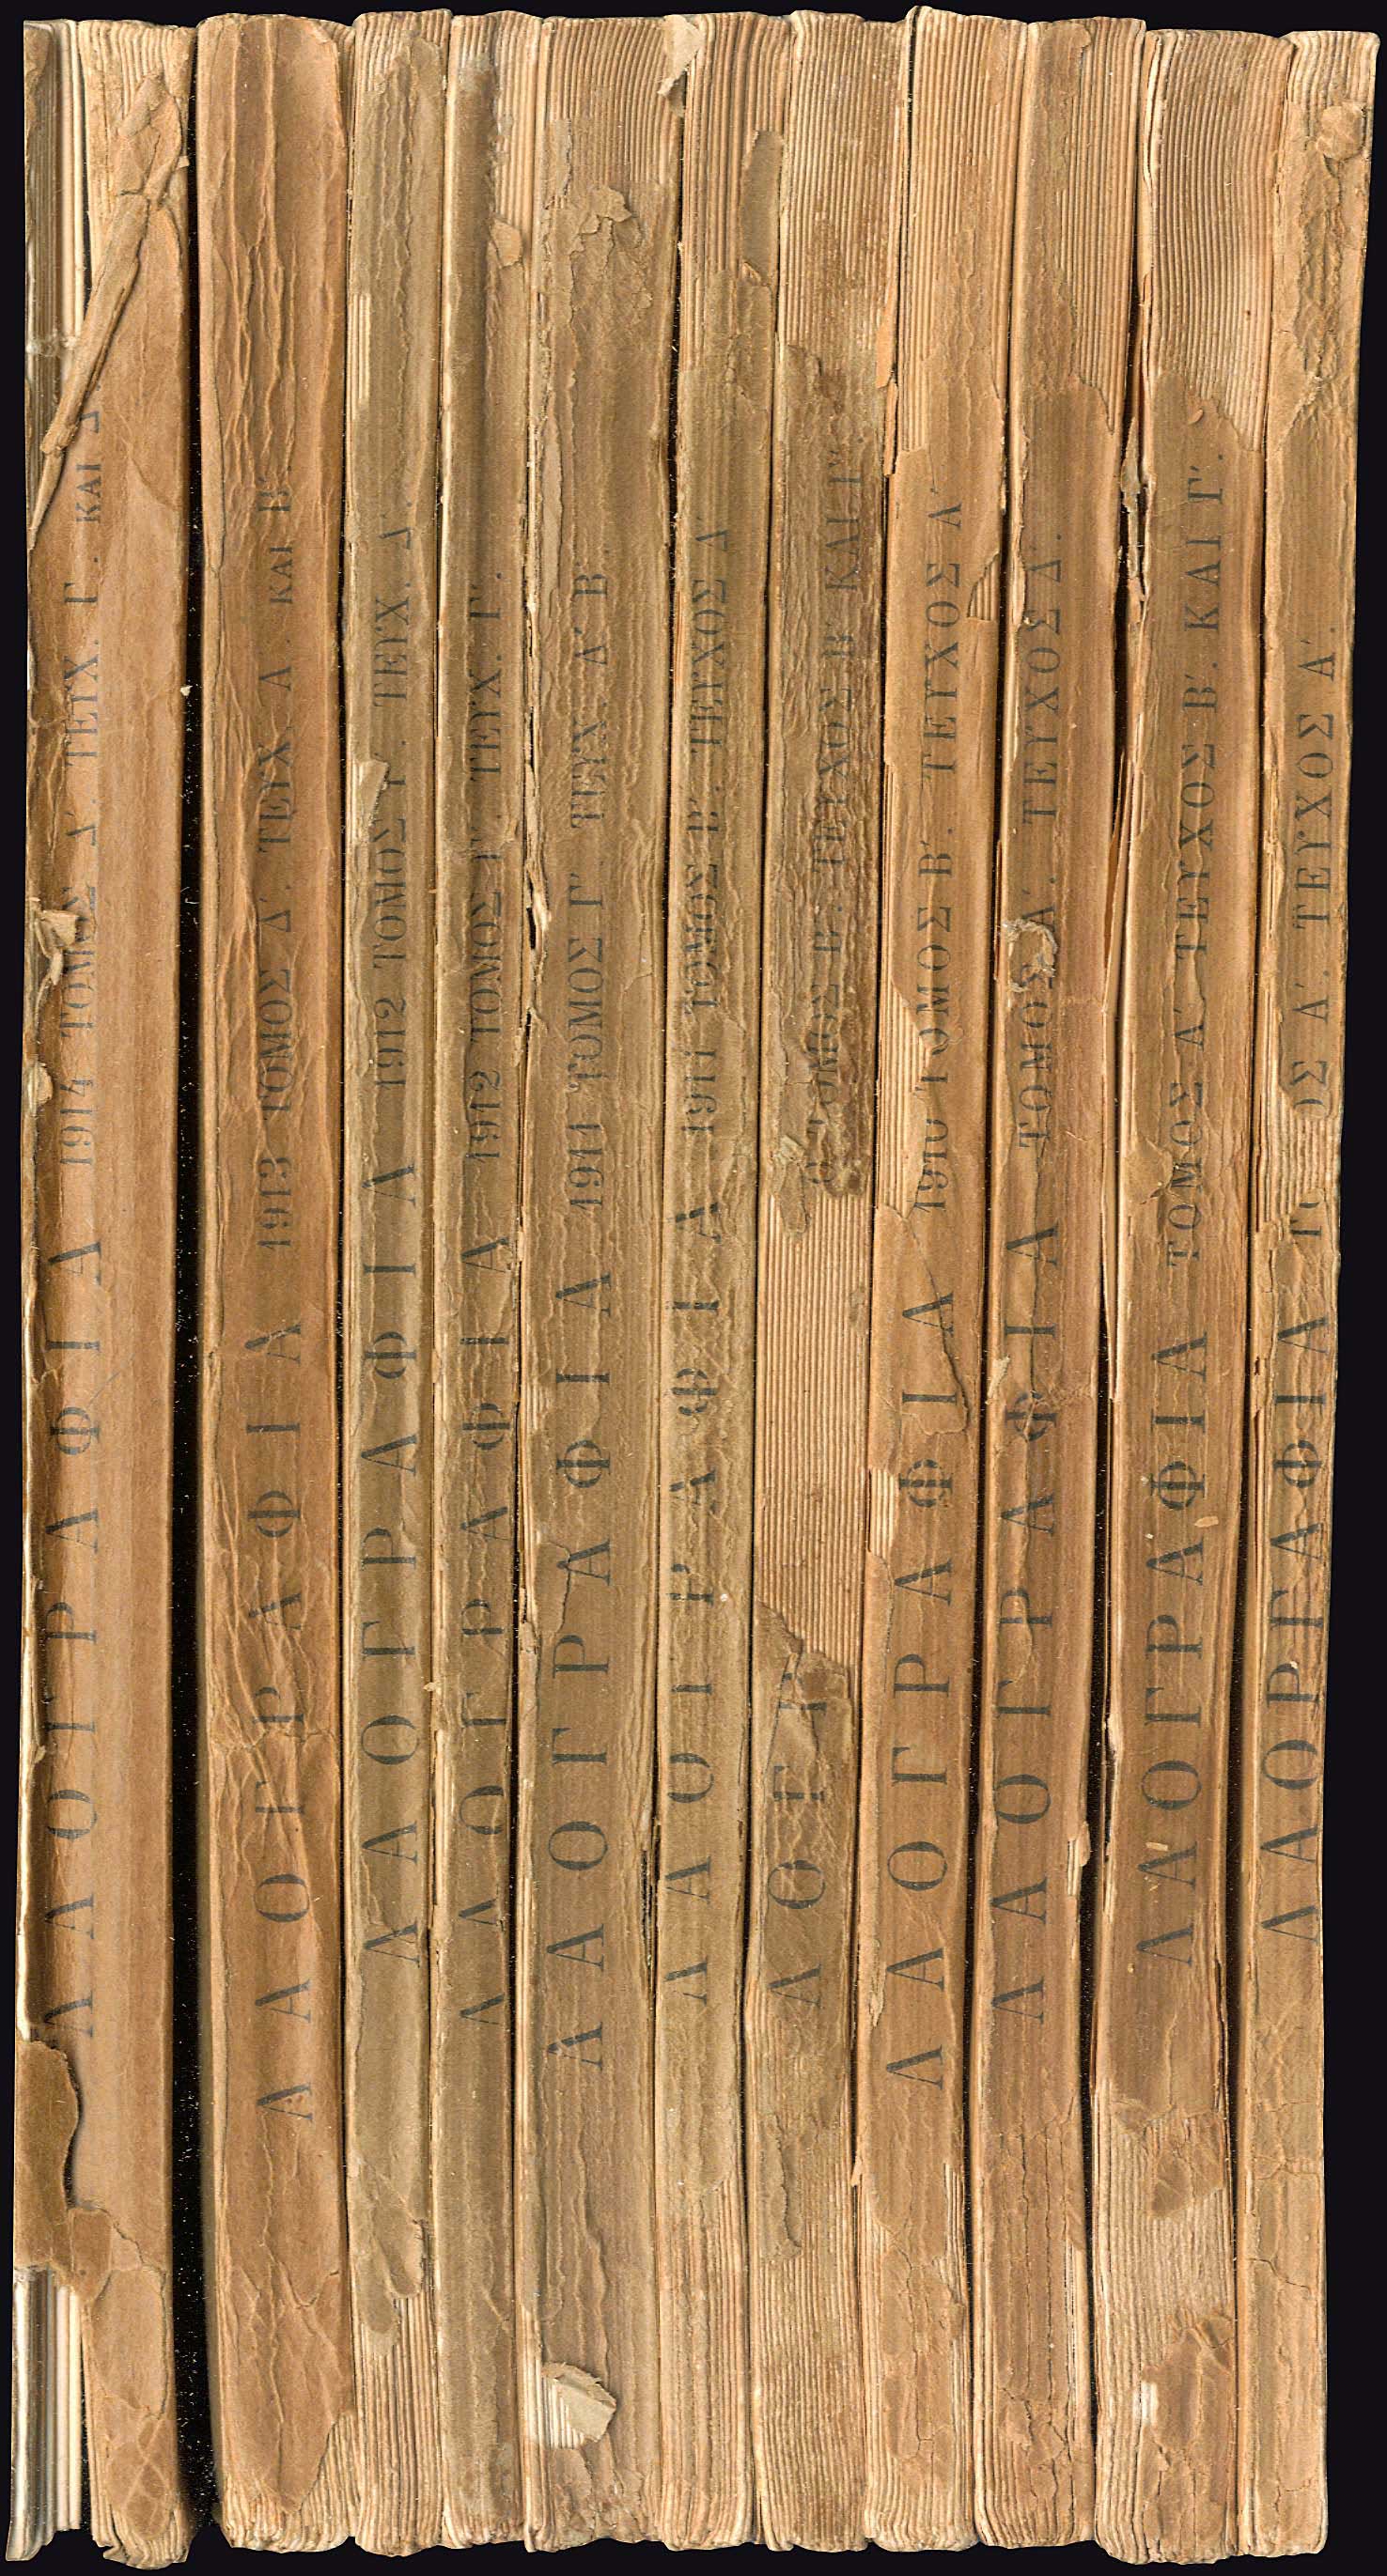 ΛΑΟΓΡΑΦΙΑ 1914 ΤΟΜΟΣ Δ΄. ΤΕΥΧ. Γ΄. ΚΑΙ Δ
ΛΑΟΓΡΑΦΙΑ 1913 ΤΟΜΟΣ Δ΄. ΤΕΥΧ. Α΄. ΚΑΙ Β΄
ΛΑΟΓΡΑΦΙΑ 1912 ΤΟΜΟΣ Γ΄. ΤΕΥΧ. Δ΄.
ΛΑΟΓΡΑΦΙΑ 1912 ΤΟΜΟΣ Γ΄. ΤΕΥΧ. Γ΄.
ΛΑΟΓΡΑΦΙΑ 1911 ΤΟΜΟΣ Γ΄ ΤΕΥΧ. Α΄. Β΄.
ΛΑΟΓΡΑΦΙΑ 1911 ΤΟΜΟΣ Β΄. ΤΕΥΧΟΣ Δ΄
ΛΑΟΓ ΤΟΜΟΣ Β΄. ΤΕΥΧΟΣ Β΄. ΚΑΙ Γ΄
ΛΑΟΓΡΑΦΙΑ 1910 ΤΟΜΟΣ Β΄. ΤΕΥΧΟΣ Α΄
ΛΑΟΓΡΑΦΙΑ ΤΟΜΟΣ Α΄. ΤΕΥΧΟΣ Δ΄.
ΛΑΟΓΡΑΦΙΑ ΤΟΜΟΣ Α΄. ΤΕΥΧΟΣ Β΄. ΚΑΙ Γ΄.
ΛΑΟΡΓΑΦΙΑ ΤΟ ΟΣ Α΄. ΤΕΥΧΟΣ Α΄.